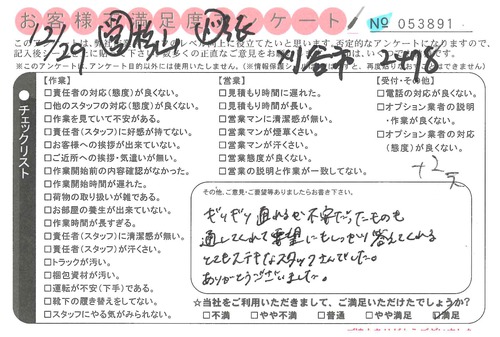 お客様満足度アンケート
№ 053891
12/29
※このアンケートは、アンケート目的以外には使用いたしません。
チェックリスト
【作業】
□責任者の対応(態度)が良くない。
□他のスタッフの対応(態度)が良くない。
□作業を見ていて不安がある。
□責任者(スタッフ)に好感が持てない。
□お客様への挨拶が出来ていない。
□ご近所への挨拶・気遣いが無い。
□作業開始前の内容確認がなかった。
□作業開始時間が遅れた。
□荷物の取り扱いが雑である。
□お部屋の養生が出来ていない。
□作業時間が長すぎる。
□責任者(スタッフ)に清潔感が無い。
□責任者(スタッフ)が汗くさい。
□トラックが汚い。
□梱包資材が汚い。
□運転が不安(下手)である。
□靴下の履き替えをしてない。
□スタッフにやる気がみられない。
【営業】
□見積もり時間に遅れた。
□見積もり時間が長い。
□営業マンに清潔感が無い。
□営業マンが煙草くさい。
□営業マンが汗くさい。
□営業態度が良くない。
□営業の説明と作業が一致してない。
【受付・その他】
□電話の対応が良くない。
□オプション業者の説明
・作業が良くない。
□オプション業者の対応
(態度)が良くない。
+2
その他、ご意見・ご要望等ありましたらお書き下さい。
ギリギリ通れるか不安だったものも
通してくれて要望にもしっかり答えてくれる
とてもステキなスタッフさんでした。
ありがとうございました。
☆当社をご利用いただきまして、ご満足いただけたでしょうか?
□不満 □やや不満 □普通 □やや満足 ☑満足